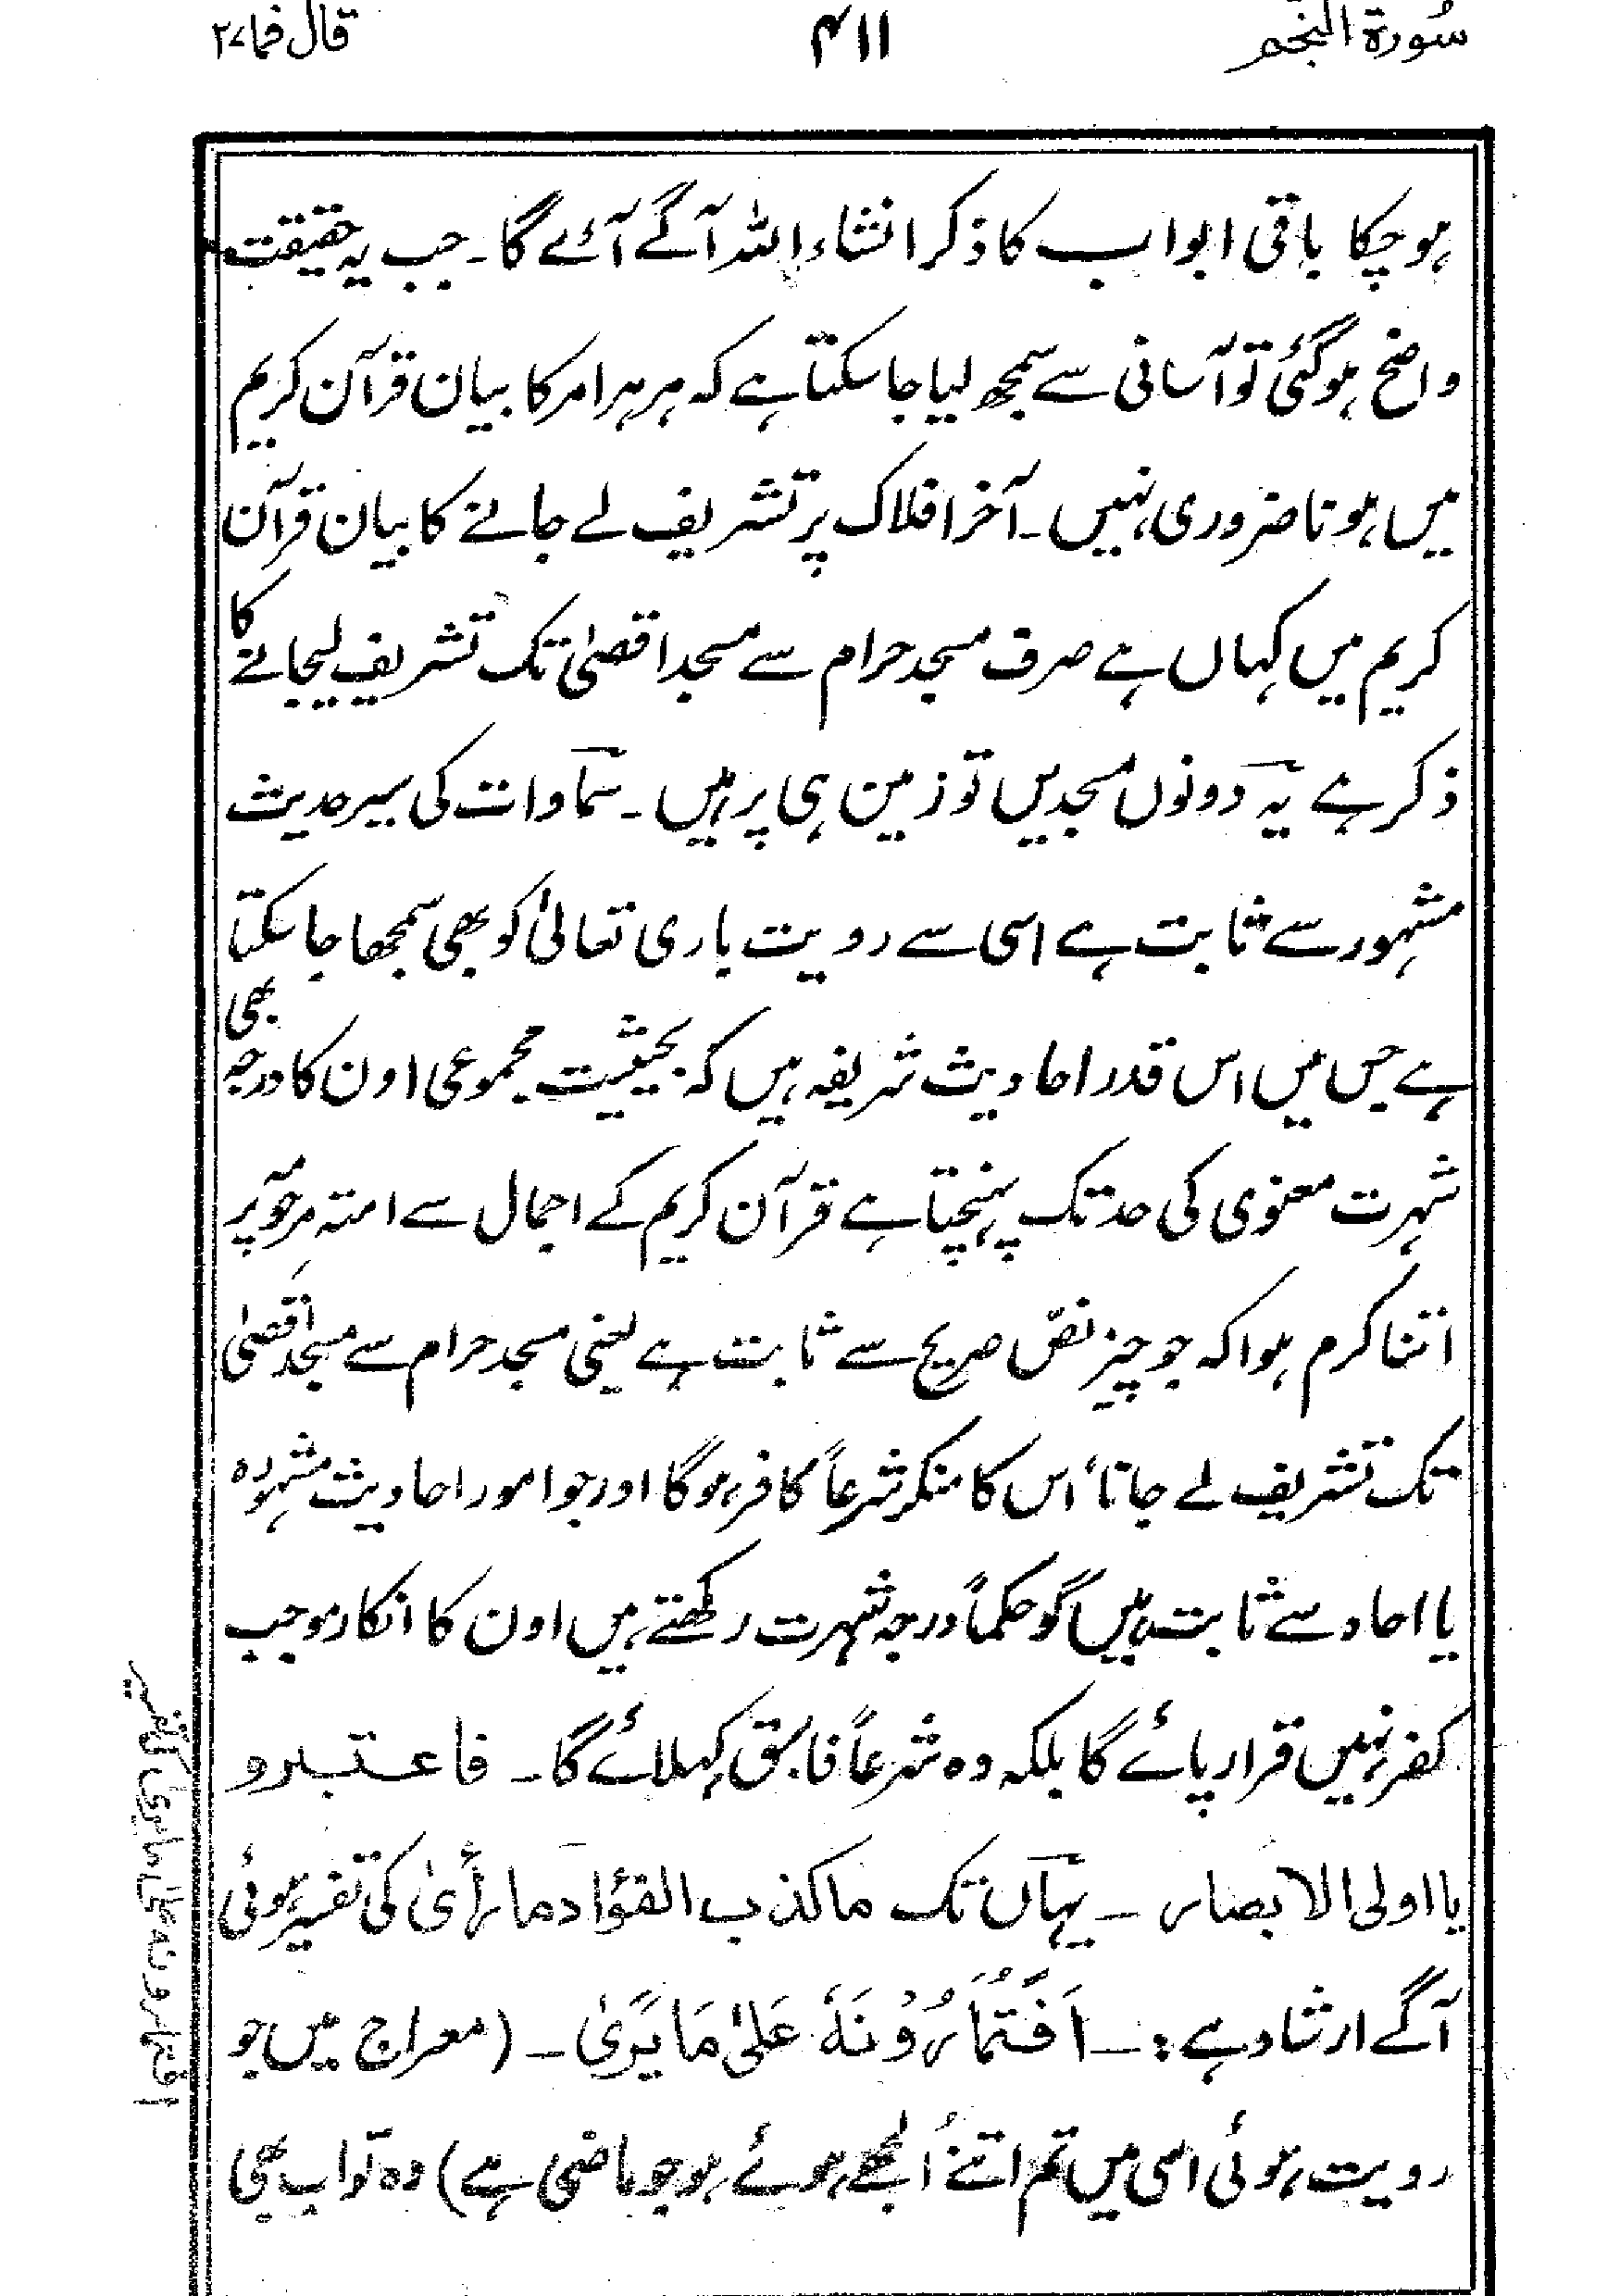 سُورة النجم
۴۱۱
قال فما ۲۷
ہوچکا باقی ابواب کا ذکر انشاء اللہ آگے آئے گا۔ جب یہ حقیقت
واضح ہوگئی تو آسانی سے سمجھ لیا جا سکتا ہے کہ ہر ہر امر کا بیان قرآن کریم
میں ہونا ضروری نہیں۔ آخر افلاک پر تشریف لے جانے کا بیان قرآن
کریم میں کہاں ہے صرف مسجد حرام سے مسجد اقصیٰ تک تشریف لیجانے کا
ذکر ہے یہ دونوں مسجدیں تو زمین ہی پر ہیں۔ سمٰاوات کی سیر حدیث
مشہور سے ثابت ہے اسی سے رویت باری تعالیٰ کو بھی سمجھا جا سکتا
ہے جس میں اس قدر احادیث شریفہ ہیں کہ بحیثیت مجموعی اون کا درجہ بھی
شہرت معنوی کی حد تک پہنچتا ہے قرآن کریم کے اجمال سے امتہ مرحومہ پر
اتنا کرم ہوا کہ جو چیز نصّ صریح سے ثابت ہے یعنی مسجد حرام سے مسجد اقصیٰ
تک تشریف لے جانا، اس کا منکر شرعاً کافر ہوگا اور جو امور احادیث مشہورہ
یا احاد سے ثابت ہیں گو حکماً درجہ شہرت رکھتے ہیں اون کا انکار موجب
کفر نہیں قرار پائے گا بلکہ وہ شرعاً فاسق کہلائے گا۔ فاعتبرو
یا اولی الابصار ۔ یہاں تک ماکذب الفؤاد ما رأیٰ کی تفسیر ہوئی
آگے ارشاد ہے :۔ اَفَتُمَارُوْنَهٗ عَلیٰ مَا یَرَیٰ ۔ (معراج میں جو
رویت ہوئی اسی میں تم اتنے اُلجھے ہوئے ہو جو ماضی ہے) وہ تو اب بھی
افتمارونہ علیٰ ما یریٰ کی تفسیر